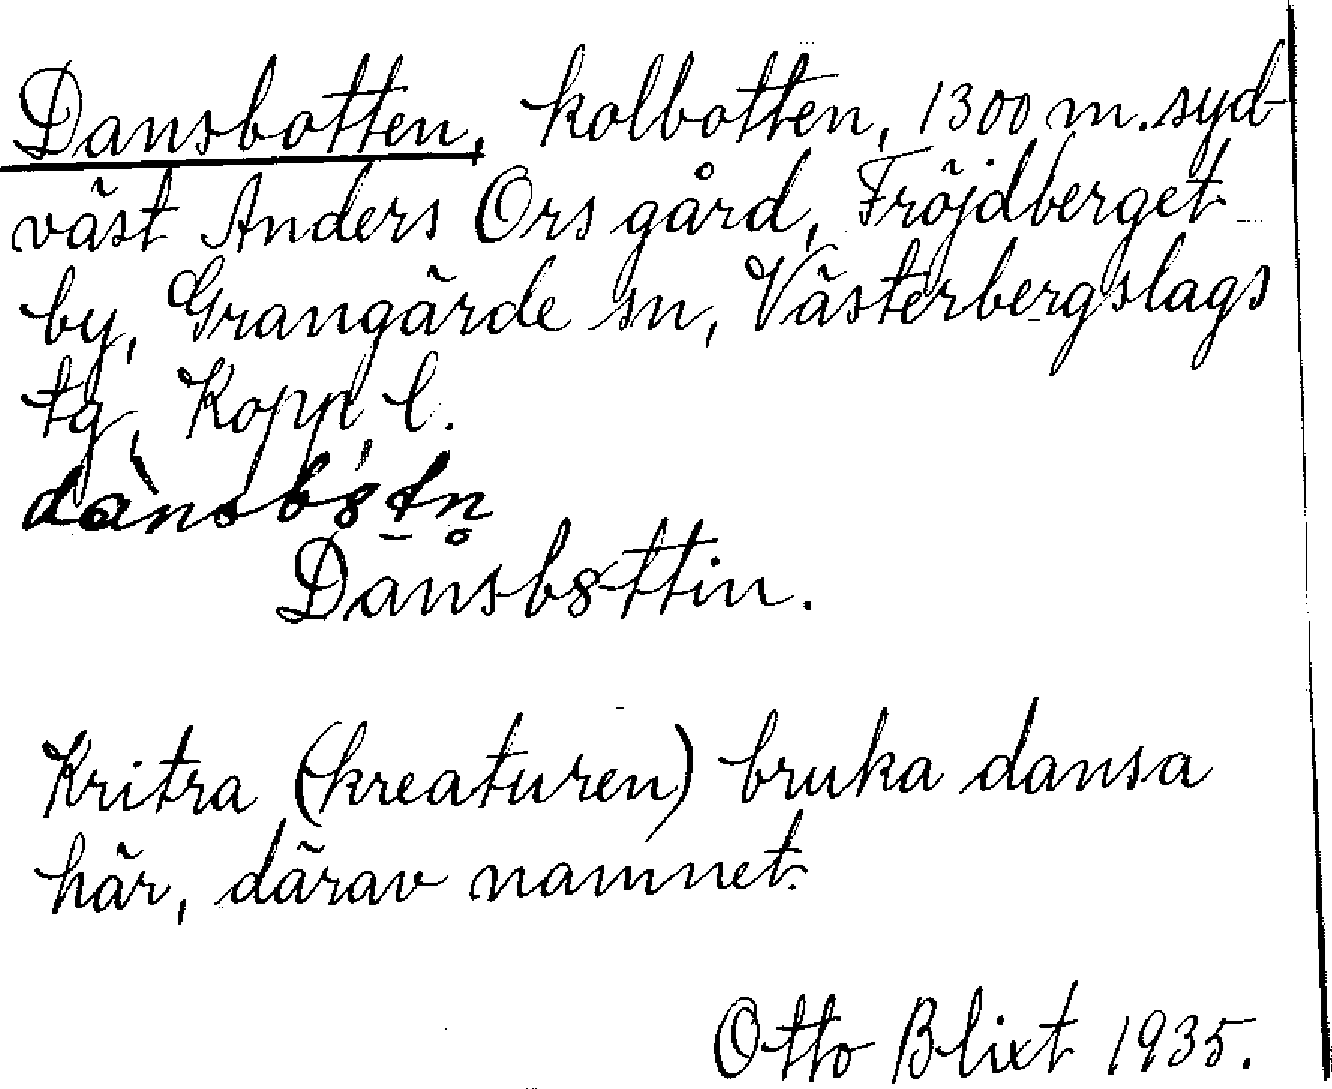 Dansbotten, kolbotten, 1300 m. syd-
väst Anders Ors gård, Fröjdberget
by, Grangärde sn, Västerbergslags
tg, Kopp, l.
Dansb8ttin.
Kritra (kreaturen) bruka dansa
här, därav namnet.
Otto Blixt 1935.